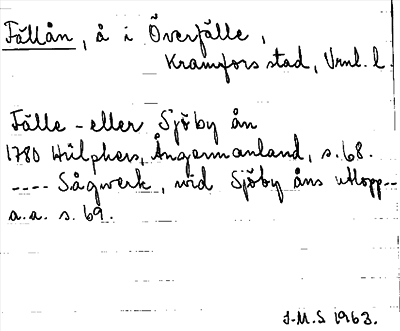 Fällån, å i Överfälle,
Kramfors stad, Vrnl. l.
Fälle - eller Sjöby ån
1780 Hülphers, Ångermanland, s. 68.
---- Sågwerk, wid Sjöby åns utlopp--
a.a. s. 69.
J.M.S 1963.